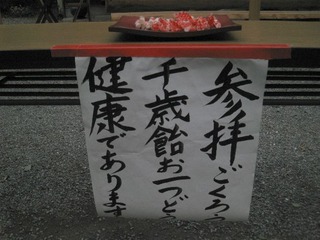 参拝ごくろう
千歳飴お一つど
健康であります